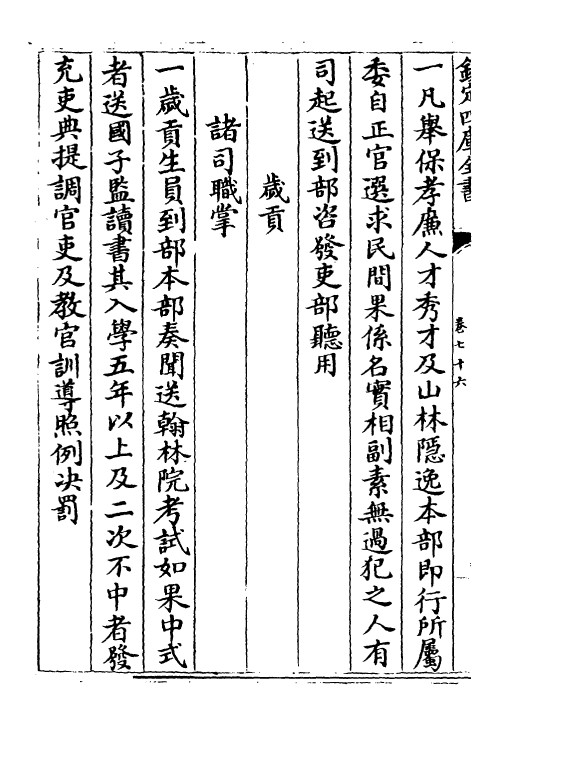 欽定四庫全書
卷七十六
一凡舉保孝廉人才秀才及山林隱逸本部即行所屬
委自正官選求民間果係名實相副素無過犯之人有
司起送到部咨發吏部聽用
歲貢
諸司職掌
一歲貢生員到部本部奏聞送翰林院考試如果中式
者送國子監讀書其入學五年以上及二次不中者發
充吏典提調官吏及教官訓導照例决罰